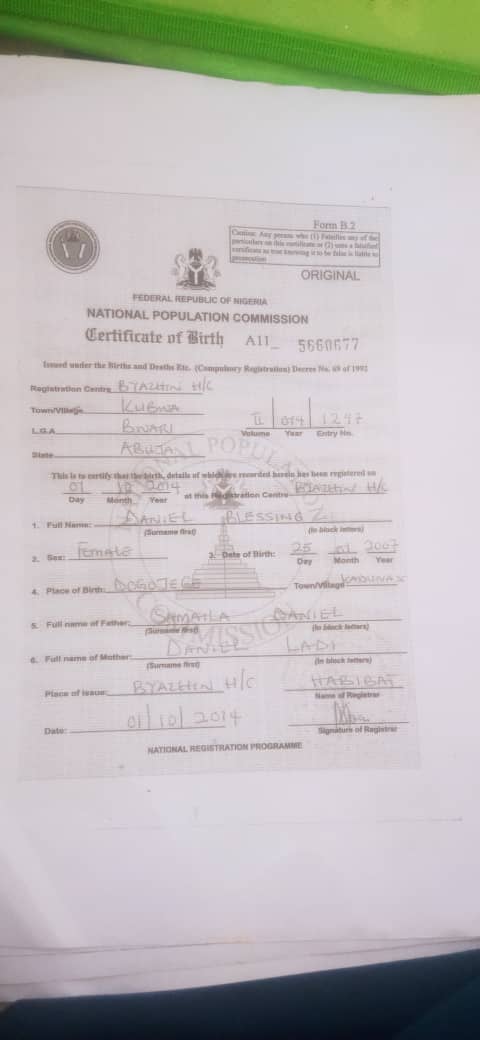 Form B.2
Caution: Any person who (1) Falsifies any of the
particulars on this certificate or (2) uses a falsified
certificate as true knowing it to be false is liable to
prosecution
ORIGINAL
FEDERAL REPUBLIC OF NIGERIA
NATIONAL POPULATION COMMISSION
Certificate of Birth A11_ 5660677
Issued under the Births and Deaths Etc. (Compulsory Registration) Decree No. 69 of 1992
Registration Centre BYAZHIN H/C
Town/Village KUBWA
L.G.A BWARI
II 014 1247
Volume Year Entry No.
State ABUJA
This is to certify that the birth, details of which are recorded herein has been registered on
01 10 2014 at this Registration Centre BYAZHIN H/C
Day Month Year
1. Full Name: DANIEL BLESSING Z
(Surname first) (In block letters)
2. Sex: FEMALE 3. Date of Birth: 25 01 2007
Day Month Year
4. Place of Birth: Town/Village
5. Full name of Father: SAMAILA DANIEL
(Surname first) (In block letters)
6. Full name of Mother: DANIEL LADI
(Surname first) (In block letters)
Place of Issue: BYAZHIN H/C HABIBAT
Name of Registrar
Date: 01/10/2014
Signature of Registrar
NATIONAL REGISTRATION PROGRAMME